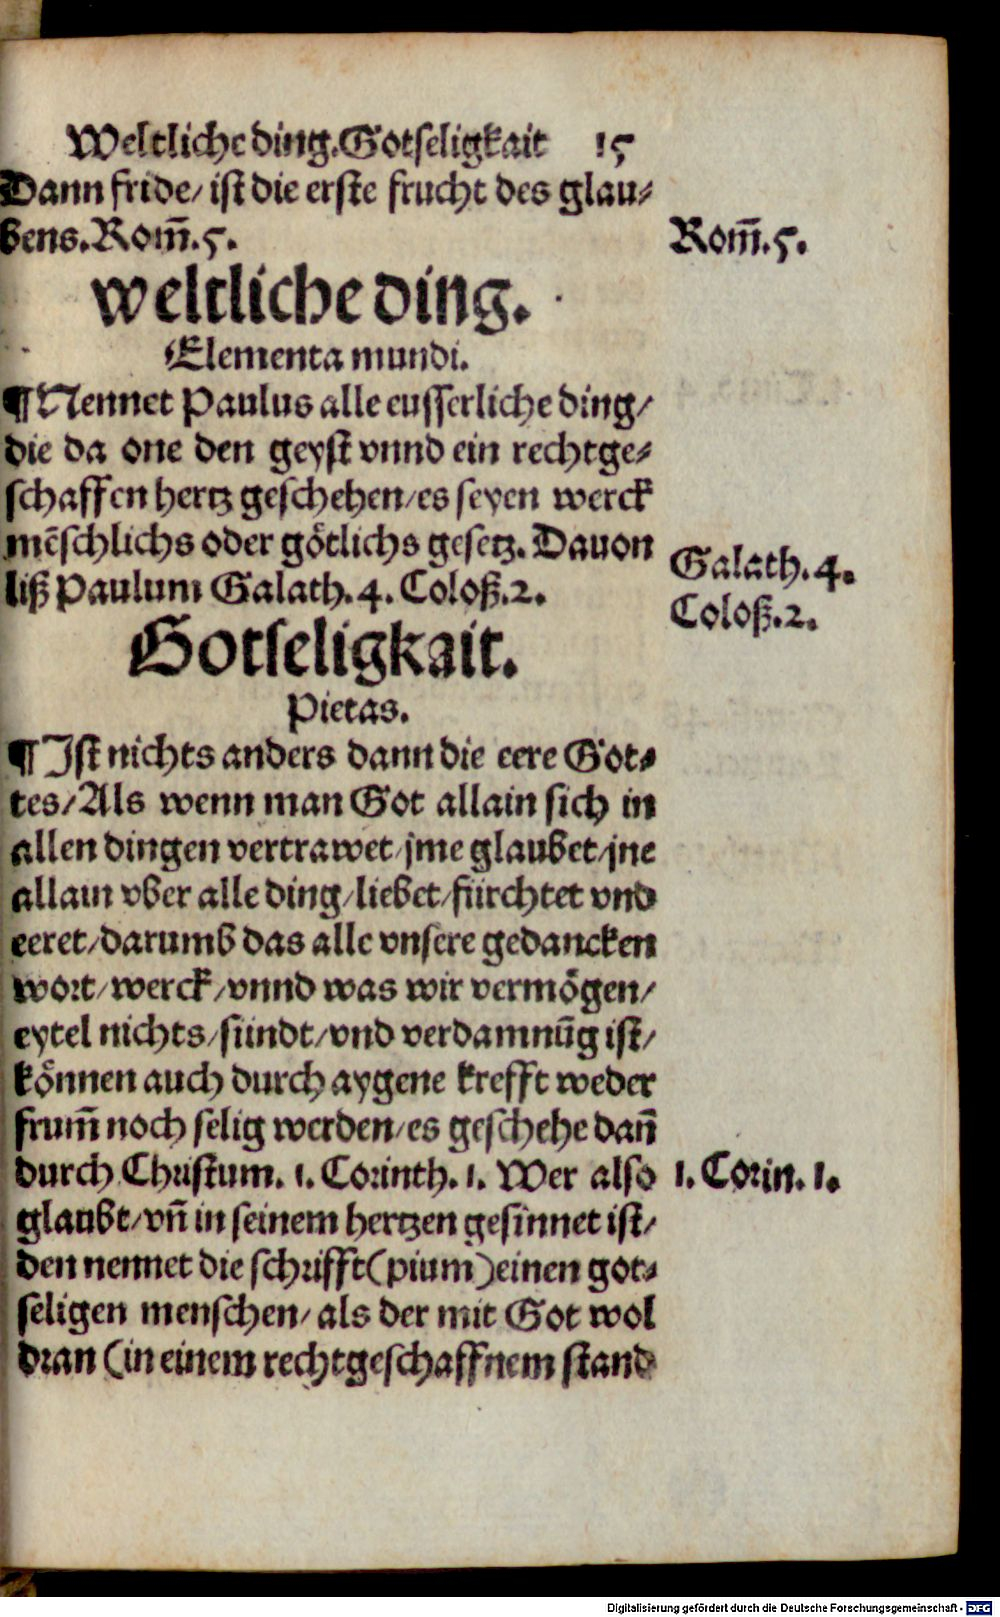 Weltliche ding. Gotseligkait 15
Dann fride/ ist die erste frucht des glau-
bens. Rom̃.5.
Rom̃.5.
weltliche ding.
Elementa mundi.
¶ Nennet Paulus alle eusserliche ding/
die da one den geyst vnnd ein rechtge-
schaffen hertz geschehen/es seyen werck
mẽschlichs oder götlichs gesetz. Dauon
liß Paulum Galath.4. Coloß.2.
Galath.4.
Coloß.2.
Gotseligkait.
Pietas.
¶ Ist nichts anders dann die eere Got-
tes/Als wenn man Got allain sich in
allen dingen vertrawet/jme glaubet/jne
allain vber alle ding/liebet/fürchtet vnd
eeret/darumb das alle vnsere gedancken
wort/werck/vnnd was wir vermögen/
eytel nichts/sündt/vnd verdamnũg ist/
können auch durch aygene krefft weder
frum̃ noch selig werden/es geschehe dañ
durch Christum. 1. Corinth.1. Wer also
1. Corin. 1.
glaubt/vñ in seinem hertzen gesinnet ist/
den nennet die schrifft (pium) einen got-
seligen menschen/ als der mit Got wol
dran (in einem rechtgeschaffnem stand
Digitalisierung gefördert durch die Deutsche Forschungsgemeinschaft - DFG